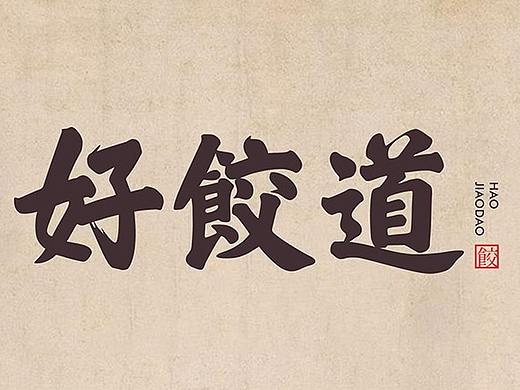 好餃道
HAO
JIAODAO
餃